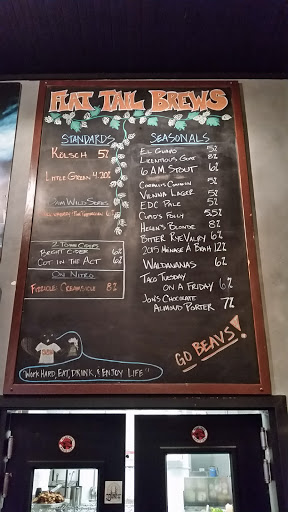 FLAT TAIL BREWS
STANDARDS
KOLSCH 5%
LITTLE GREEN 4.20%
DAM WILD SERIES
6%
2 TOWNS CIDERS
BRIGHT CIDER 6%
COT IN THE ACT 6%
ON NITRO
FIDDLE CREAMSICLE 8%
SEASONALS
EL GUAPO 5%
LICENTIOUS GOSE 8%
6 AM STOUT 6%
CORVALLIS COMMON 5%
VIENNA LAGER 5%
EDC PALE 5%
CUPID'S FOLLY 5.5%
HELEN'S BLONDE 8%
BITTER RYE VALRY 6%
2015 MENAGE A BRAH 12%
WALDANANAS 6%
TACO TUESDAY
ON A FRIDAY 6%
JON'S CHOCOLATE
ALMOND PORTER 7%
GO BEAVS!
"WORK HARD, EAT, DRINK, & ENJOY LIFE"